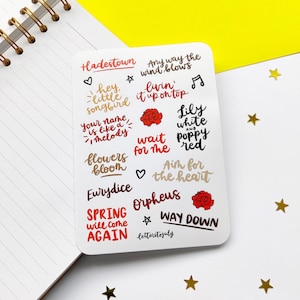 Hadestown
Any way the
wind blows
hey,
little
songbird
livin'
it up on top
Your name
is like a
melody
Lily
white
and
poppy
red
wait
for me
flowers
bloom
Aim for
the heart
Eurydice
Orpheus
SPRING
will come
AGAIN
WAY DOWN